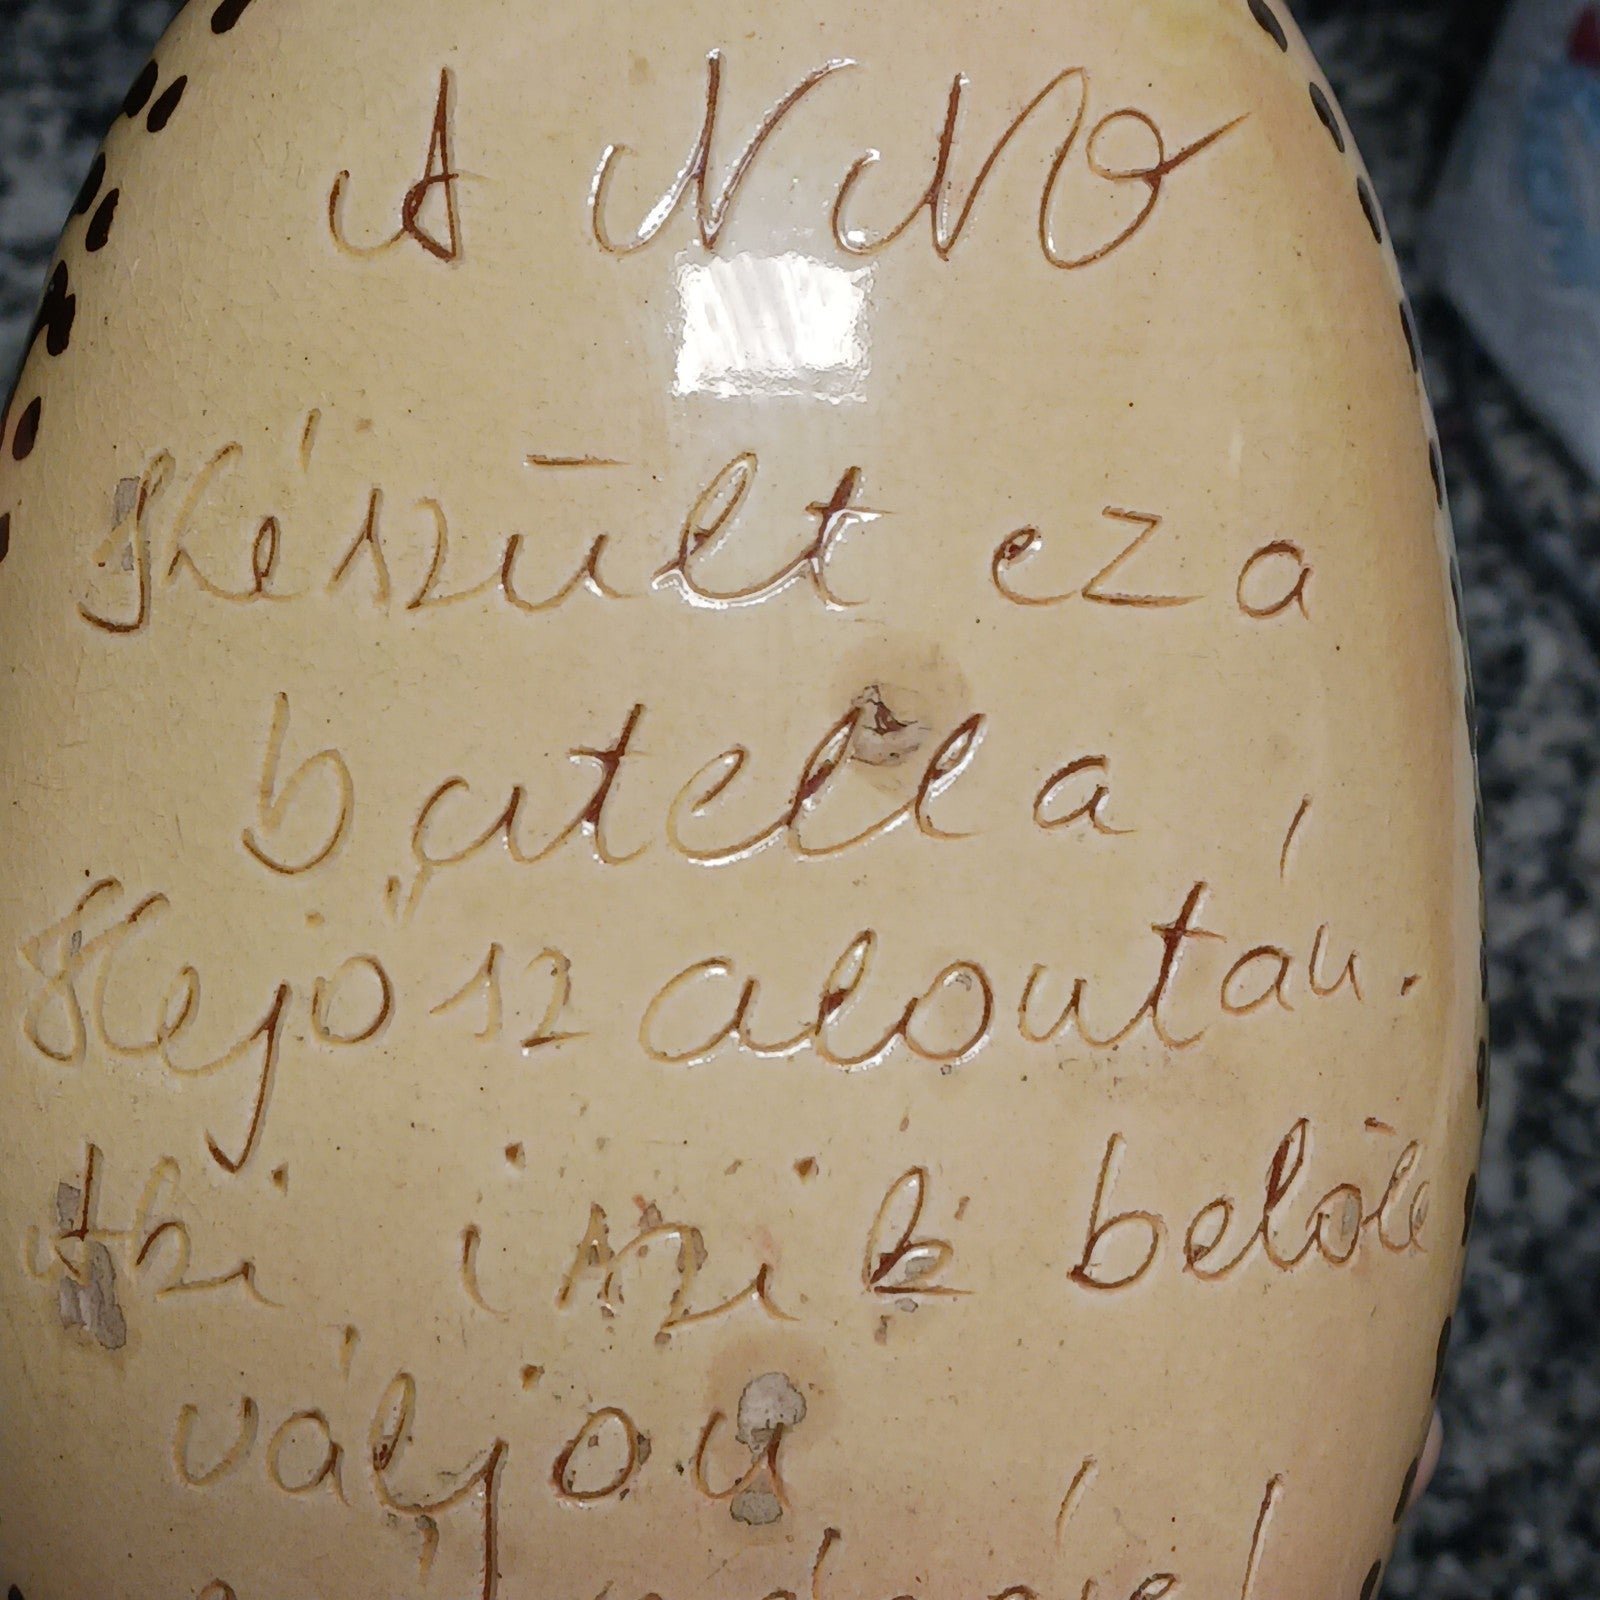 A NNO
Készült eza
butella
Kejösz aloután.
Aki iszik belöle
váljou